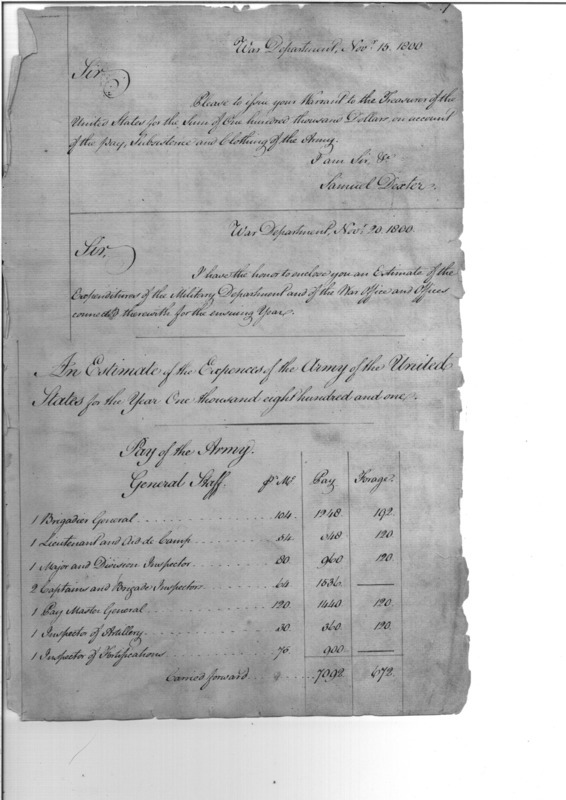 War Department, Novr. 15. 1800
Sir
Please to issue your Warrant to the Treasurer of the
United States for the Sum of One hundred thousand Dollars, on account
of the pay, Subsistence and Clothing of the Army.
I am Sir, &c
Samuel Dexter.
War Department, Novr. 20. 1800
Sir,
I have the honor to enclose you an Estimate of the
Expenditures of the Military Department and of the War Office and Offices
connected therewith for the ensuing Year.
An Estimate of the Expences of the Army of the United
States for the Year One thousand eight hundred and one.
Pay of the Army.
General Staff. pr. Mo. Pay Forage.
1 Brigadier General 104. 1248 192.
1 Lieutenant and Aid de Camp 54. 648 120
1 Major and Division Inspector 80 960 120.
2 Captains and Brigade Inspectors 64 1536.
1 Pay Master General 120. 1440. 120.
1 Inspector of Artillery 30 360. 120.
1 Inspector of Fortifications 75 900
Carried forward $ 7092. 672.